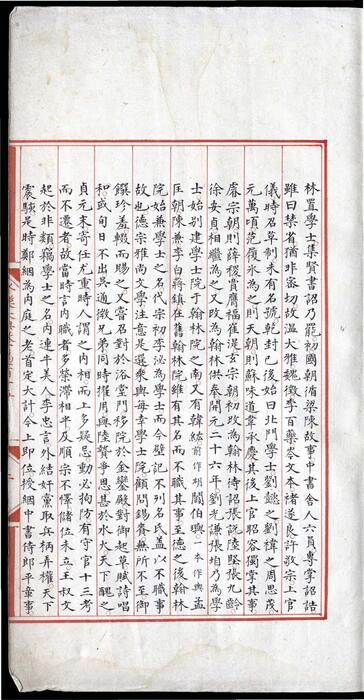 林置學士集賢書詔乃罷初國朝循梁陳故事中書舍人六員專掌詔誥
雖曰禁省猶非密切故溫大雅魏徵李百藥岑文本褚遂良許敬宗上官
儀時召草制未有名號乾封已後始曰北門學士劉懿之劉禕之周思茂
元萬頃范履冰為之則天朝則蘇味道韋承慶其後上官昭容獨掌其事
睿宗朝則薛稷賈膺福崔湜玄宗朝初改為翰林待詔張說陸堅張九齡
徐安貞相繼為之又改為翰林供奉開元二十六年劉光謙張垍乃為學
士始別建學士院于翰林院之南又有韓紘前作翃閻伯璵一本作輿孟
匡朝陳兼李白蔣鎮在舊翰林院雖有其名而不職其事至德之後翰林
院始兼學士之名代宗初李泌為學士而今壁記不列名氏蓋以不職事
故也德宗雅尚文學注意是選乘輿每幸學士院顧問錫賚無所不至御
饌珍羞輟而賜之又嘗召對於浴堂門移院於金鑾殿對御起草賦詩唱
和或旬日不出吳通微兄弟同時擢用與陸贄爭恩甚於水火天下醜之
貞元末寄任尤重時人謂之內相而上多疑忌動必拘防有守官十三考
而不遷者故當時言內職者多榮滯相半及順宗不懌儲位未立王叔文
起於非類竊學士之名內連牛美人李忠言外結奸黨取兵柄弄權天下
震駭是時鄭絪為內庭之老首定大計今上即位授絪中書侍郎平章事